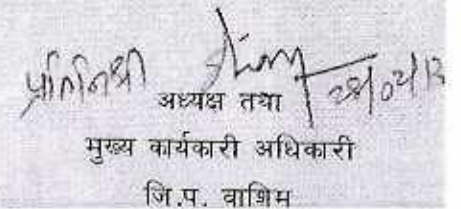 प्रतिनिधी
अध्यक्ष तथा
मुख्य कार्यकारी अधिकारी
जि.प. वाशिम